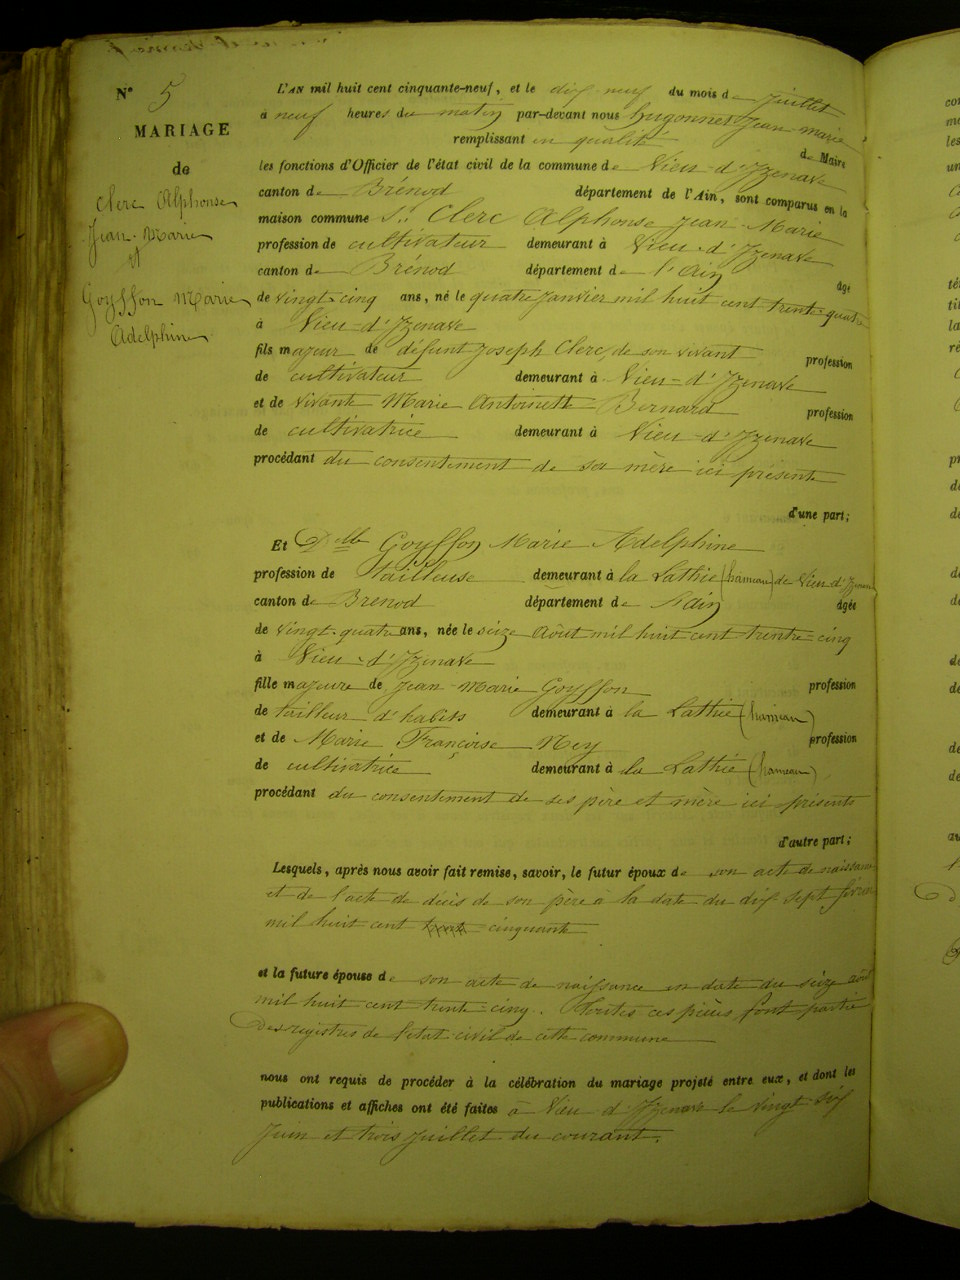 N° 5
MARIAGE
de
Clerc Alphonse
Jean-Marie
et
Goyffon Marie
Adelphine
L'AN mil huit cent cinquante-neuf, et le dix neuf du mois de juillet
à neuf heures du matin par-devant nous hugonnet Jean-marie
remplissant en qualité de Maire
les fonctions d'Officier de l'état civil de la commune de Vieu-d'Izenave
canton de Brénod département de l'Ain, sont comparus en la
maison commune Sr Clerc Alphonse Jean-Marie
profession de cultivateur demeurant à Vieu-d'Izenave
canton de Brénod département de l'Ain âgé
de vingt-cinq ans, né le quatre janvier mil huit cent trente-quatre
à Vieu-d'Izenave
fils majeur de défunt Joseph Clerc, de son vivant profession
de cultivateur demeurant à Vieu-d'Izenave
et de vivante Marie Antoinette Bernard profession
de cultivatrice demeurant à Vieu-d'Izenave
procédant du consentement de sa mère ici présente
d'une part;
Et Delle Goyffon Marie Adelphine
profession de tailleuse demeurant à la Lathie (hameau) de Vieu-d'Izenave
canton de Brenod département de l'ain âgée
de vingt-quatre ans, née le seize Août mil huit cent trente-cinq
à Vieu-d'Izenave
fille majeure de Jean-Marie Goyffon profession
de tailleur d'habits demeurant à la Lathie (hameau)
et de Marie Françoise Ney profession
de cultivatrice demeurant à la Lathie (hameau)
procédant du consentement de ses père et mère ici présents
d'autre part;
Lesquels, après nous avoir fait remise, savoir, le futur époux de son acte de naissance
et de l'acte de décès de son père à la date du dix sept février
mil huit cent cinquante
et la future épouse de son acte de naissance en date du seize août
mil huit cent trente-cinq. Toutes ces pièces font partie
des registres de l'état civil de cette commune
nous ont requis de procéder à la célébration du mariage projeté entre eux, et dont les
publications et affiches ont été faites à Vieu d'Izenave le vingt-six
Juin et trois Juillet du courant.